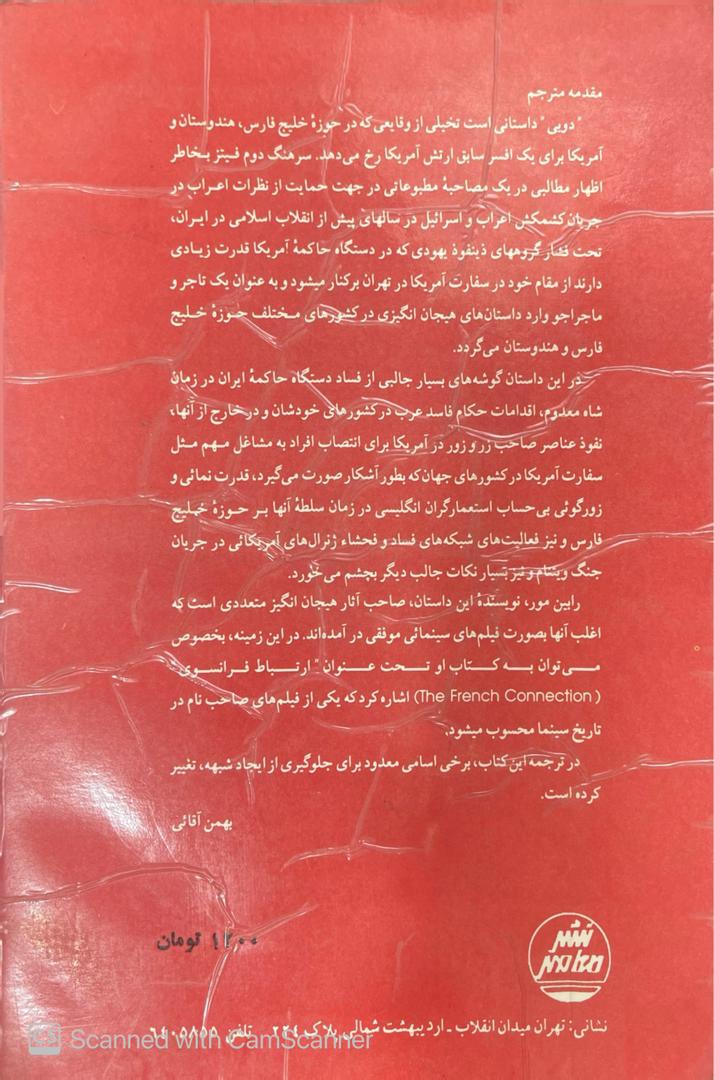 مقدمه مترجم
"دوبی" داستانی است تخیلی از وقایعی که در حوزهٔ خلیج فارس، هندوستان و
آمریکا برای یک افسر سابق ارتش آمریکا رخ می‌دهد. سرهنگ دوم فیتز بخاطر
اظهار مطالبی در یک مصاحبهٔ مطبوعاتی در جهت حمایت از نظرات اعراب در
جریان کشمکش اعراب و اسرائیل در سالهای پیش از انقلاب اسلامی در ایران،
تحت فشار گروههای ذینفوذ یهودی که در دستگاه حاکمهٔ آمریکا قدرت زیادی
دارند از مقام خود در سفارت آمریکا در تهران برکنار میشود و به عنوان یک تاجر و
ماجراجو وارد داستان‌های هیجان انگیزی در کشورهای مختلف حوزهٔ خلیج
فارس و هندوستان می‌گردد.
در این داستان گوشه‌های بسیار جالبی از فساد دستگاه حاکمهٔ ایران در زمان
شاه معدوم، اقدامات حکام فاسد عرب در کشورهای خودشان و در خارج از آنها،
نفوذ عناصر صاحب زر و زور در آمریکا برای انتصاب افراد به مشاغل مهم مثل
سفارت آمریکا در کشورهای جهان که بطور آشکار صورت می‌گیرد، قدرت نمائی و
زورگوئی بی‌حساب استعمارگران انگلیسی در زمان سلطهٔ آنها بر حوزهٔ خلیج
فارس و نیز فعالیت‌های شبکه‌های فساد و فحشاء ژنرال‌های آمریکائی در جریان
جنگ ویتنام و نیز بسیار نکات جالب دیگر بچشم می‌خورد.
رابین مور، نویسندهٔ این داستان، صاحب آثار هیجان انگیز متعددی است که
اغلب آنها بصورت فیلم‌های سینمائی موفقی در آمده‌اند. در این زمینه، بخصوص
می‌توان به کتاب او تحت عنوان "ارتباط فرانسوی"
(The French Connection) اشاره کرد که یکی از فیلم‌های صاحب نام در
تاریخ سینما محسوب میشود.
در ترجمه این کتاب، برخی اسامی معدود برای جلوگیری از ایجاد شبهه، تغییر
کرده است.
بهمن آقائی
۱۲۰۰ تومان
نشر
معاصر
نشانی: تهران میدان انقلاب - اردیبهشت شمالی پلاک ۲۲۴ تلفن ۶۴۰۵۸۵۵
CS Scanned with CamScanner